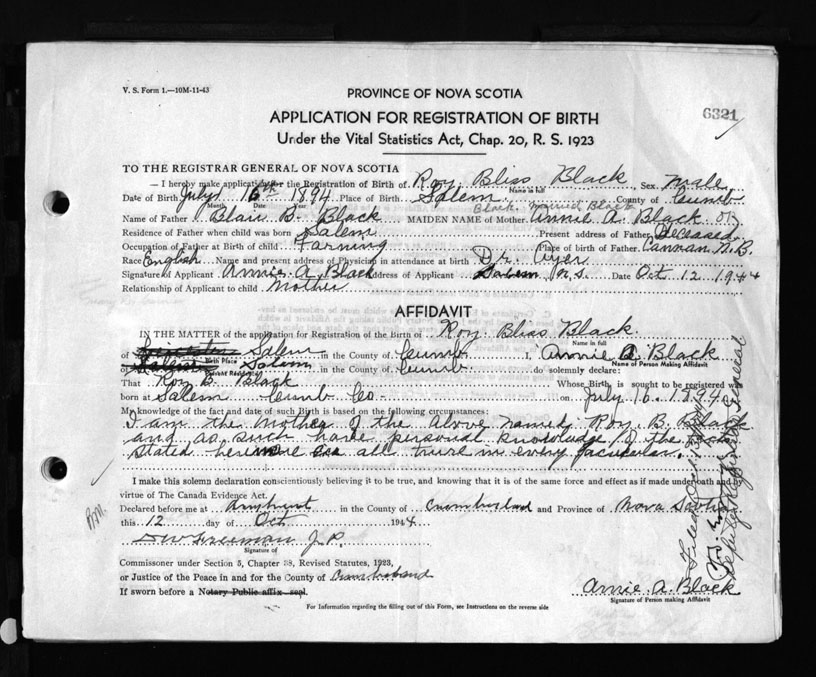 V. S. Form 1.—10M-11-43
PROVINCE OF NOVA SCOTIA
6321
APPLICATION FOR REGISTRATION OF BIRTH
Under the Vital Statistics Act, Chap. 20, R. S. 1923
TO THE REGISTRAR GENERAL OF NOVA SCOTIA
— I hereby make application for the Registration of Birth of Roy Bliss Black Sex Male
Name in full
Date of Birth July 16th 1894 Place of Birth Salem County of Cumb
Month Date Year
Black married Black
Name of Father Blair B. Black MAIDEN NAME of Mother Annie A. Black
Residence of Father when child was born Salem Present address of Father Deceased
Occupation of Father at Birth of child Farming Place of Birth of Father Cannan N.B.
Race English Name and present address of Physician in attendance at birth Dr.
Signature of Applicant Annie A. Black Address of Applicant Salem N.S. Date Oct 12 1944
Relationship of Applicant to child Mother
AFFIDAVIT
IN THE MATTER of the application for Registration of the Birth of Roy Bliss Black
Name in full
of Salem in the County of Cumb I, Annie A Black
Birth Place Name of Person Making Affidavit
of Salem Salem in the County of Cumb do solemnly declare:
Present Residence
That Roy B. Black Whose Birth is sought to be registered was
born at Salem Cumb Co on July 16. 1894
My knowledge of the fact and date of such Birth is based on the following circumstances:
I am the Mother of the above named Roy. B. Black
and as such have personal knowledge of the
stated all true in every
I make this solemn declaration conscientiously believing it to be true, and knowing that it is of the same force and effect as if made under oath and by
virtue of The Canada Evidence Act.
Declared before me at Amherst in the County of Cumberland and Province of Nova Scotia
this 12 day of Oct 1944
Freeman J. P.
Signature of
Commissioner under Section 5, Chapter 38, Revised Statutes, 1923,
or Justice of the Peace in and for the County of Cumberland
If sworn before a Notary Public affix seal.
Annie A. Black
Signature of Person making Affidavit
For Information regarding the filling out of this Form, see Instructions on the reverse side
Deputy Registrar General